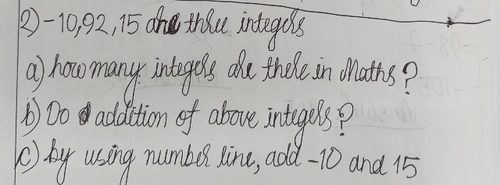 2) -10, 92, 15 are three integers
a) how many integers are there in Maths?
b) Do addition of above integers?
c) by using number line, add -10 and 15